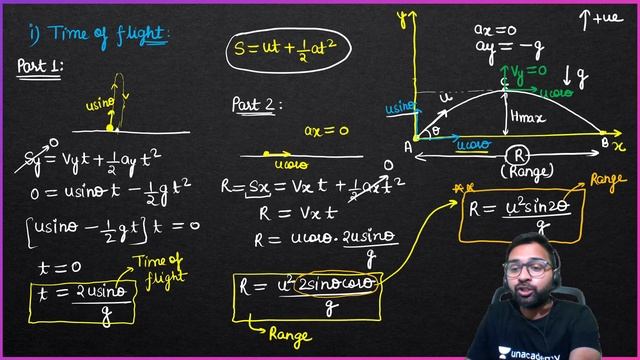 i) Time of flight:
Part 1:
usinθ
0
Sy = Vyt + 1/2 ayt²
0 = usinθ t - 1/2 gt²
[usinθ - 1/2 gt] t = 0
t = 0
t = 2usinθ/g
Time of flight
S = ut + 1/2 at²
Part 2:
ax = 0
ucosθ
0
R = Sx = Vx t + 1/2 axt²
R = Vx t
R = ucosθ · 2usinθ/g
R = u² 2sinθcosθ/g
Range
y
ax = 0
ay = -g
↑ +ve
C
Vy = 0
↓ g
ucosθ
usinθ
u
θ
Hmax
A
ucosθ
B
x
R
(Range)
**
R = u²sin2θ/g
Range
unacademy